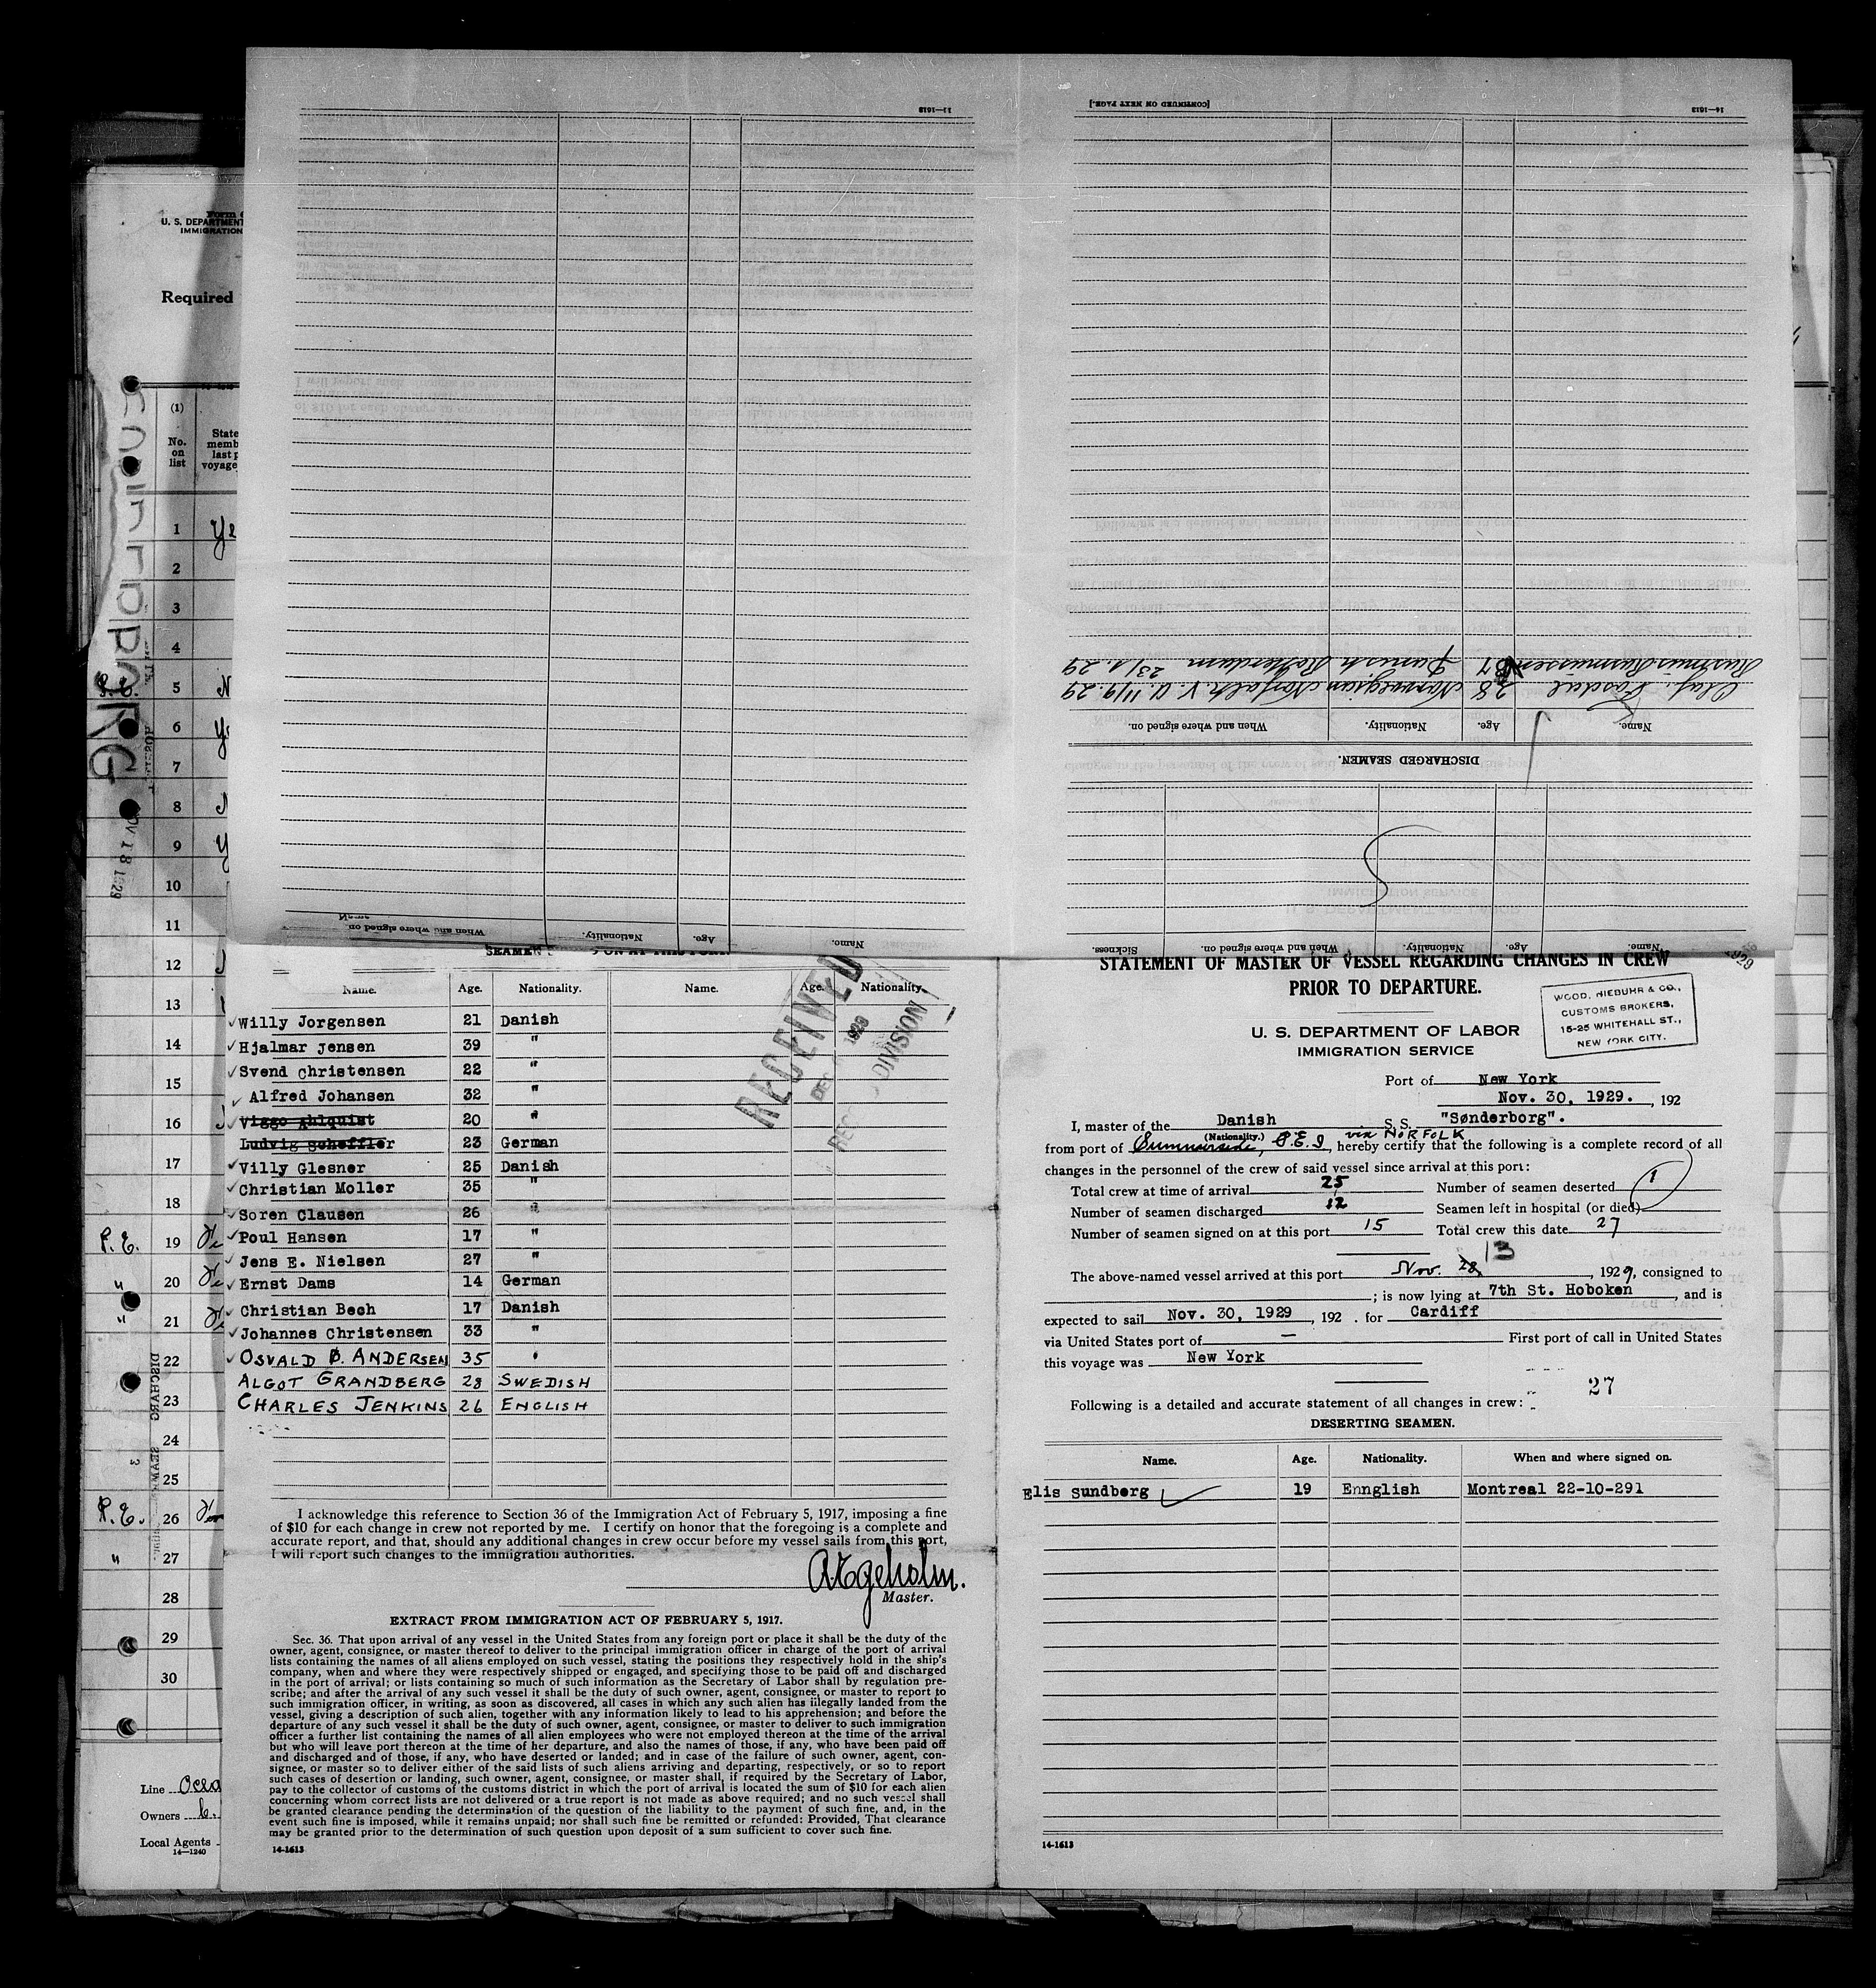 14—1613
[CONTINUED ON NEXT PAGE.]
11—1613
Form
U. S. DEPARTMENT
IMMIGRATION
Required
(1)
No. on list
State
memb
last p
voyage
1
2
3
4
5
6
7
8
9
10
11
12
13
14
15
16
17
18
P. E. 19
" 20
" 21
22
23
24
25
P. E. 26
" 27
28
29
30
NOV 18 1929
Line
Owners
Local Agents
14—1240
Rasmus Rasmussen Danish Rotterdam 23/1.29
Oluf 28 Norwegian Norfolk V.A. 11/9.29
Name. Age. Nationality. When and where signed on.
DISCHARGED SEAMEN.
Name. Age. Nationality. When and where signed on. Sickness.
Name. Age. Nationality. When and where signed on.
SEAMEN ON AT THIS PORT.
Name. Age. Nationality. Name. Age. Nationality.
RECEIVED
DEC 1929
DIVISION
Willy Jorgensen 21 Danish
Hjalmar jensen 39 "
Svend Christensen 22 "
Alfred Johansen 32 "
Viggo Ahlquist 20 "
Ludvig scheffler 23 German
Villy Glesner 25 Danish
Christian Moller 35 "
Soren Clausen 26 "
Poul Hansen 17 "
Jens E. Nielsen 27 "
Ernst Dams 14 German
Christian Bech 17 Danish
Johannes Christensen 33 "
OSVALD Ø. ANDERSEN 35 "
ALGOT GRANDBERG 28 SWEDISH
CHARLES JENKINS 26 ENGLISH
I acknowledge this reference to Section 36 of the Immigration Act of February 5, 1917, imposing a fine
of $10 for each change in crew not reported by me. I certify on honor that the foregoing is a complete and
accurate report, and that, should any additional changes in crew occur before my vessel sails from this port,
I will report such changes to the immigration authorities.
A. Egeholm.
Master.
EXTRACT FROM IMMIGRATION ACT OF FEBRUARY 5, 1917.
Sec. 36. That upon arrival of any vessel in the United States from any foreign port or place it shall be the duty of the
owner, agent, consignee, or master thereof to deliver to the principal immigration officer in charge of the port of arrival
lists containing the names of all aliens employed on such vessel, stating the positions they respectively hold in the ship's
company, when and where they were respectively shipped or engaged, and specifying those to be paid off and discharged
in the port of arrival; or lists containing so much of such information as the Secretary of Labor shall by regulation pre-
scribe; and after the arrival of any such vessel it shall be the duty of such owner, agent, consignee, or master to report to
such immigration officer, in writing, as soon as discovered, all cases in which any such alien has illegally landed from the
vessel, giving a description of such alien, together with any information likely to lead to his apprehension; and before the
departure of any such vessel it shall be the duty of such owner, agent, consignee, or master to deliver to such immigration
officer a further list containing the names of all alien employees who were not employed thereon at the time of the arrival
but who will leave port thereon at the time of her departure, and also the names of those, if any, who have been paid off
and discharged and of those, if any, who have deserted or landed; and in case of the failure of such owner, agent, con-
signee, or master so to deliver either of the said lists of such aliens arriving and departing, respectively, or so to report
such cases of desertion or landing, such owner, agent, consignee, or master shall, if required by the Secretary of Labor,
pay to the collector of customs of the customs district in which the port of arrival is located the sum of $10 for each alien
concerning whom correct lists are not delivered or a true report is not made as above required; and no such vessel shall
be granted clearance pending the determination of the question of the liability to the payment of such fine, and, in the
event such fine is imposed, while it remains unpaid; nor shall such fine be remitted or refunded: Provided, That clearance
may be granted prior to the determination of such question upon deposit of a sum sufficient to cover such fine.
14-1613
STATEMENT OF MASTER OF VESSEL REGARDING CHANGES IN CREW
PRIOR TO DEPARTURE.
U. S. DEPARTMENT OF LABOR
IMMIGRATION SERVICE
WOOD, NIEBUHR & CO.,
CUSTOMS BROKERS,
15-25 WHITEHALL ST.,
NEW YORK CITY.
Port of New York
Nov. 30, 1929. , 192
I, master of the Danish S. S. "Sønderborg".
(Nationality.)
from port of Summerside, P.E.I. via NORFOLK, hereby certify that the following is a complete record of all
changes in the personnel of the crew of said vessel since arrival at this port:
Total crew at time of arrival 25 Number of seamen deserted 1
Number of seamen discharged 12 Seamen left in hospital (or died)
Number of seamen signed on at this port 15 Total crew this date 27
13
The above-named vessel arrived at this port Nov. 28, 1929, consigned to
; is now lying at 7th St. Hoboken, and is
expected to sail Nov. 30, 1929, 192 . for Cardiff
via United States port of — First port of call in United States
this voyage was New York
27
Following is a detailed and accurate statement of all changes in crew:
DESERTING SEAMEN.
Name. Age. Nationality. When and where signed on.
Elis sundberg 19 Ennglish Montreal 22-10-291
14-1613